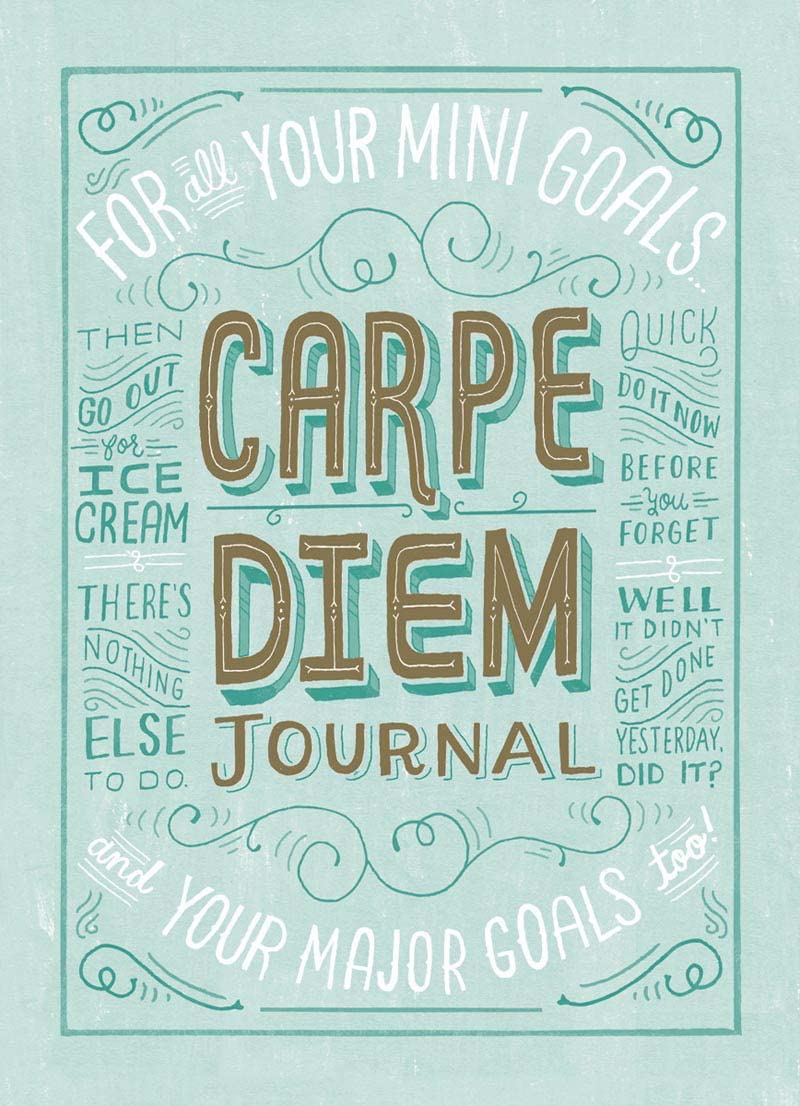 FOR all YOUR MINI GOALS...
CARPE
DIEM
JOURNAL
THEN
GO OUT
for
ICE
CREAM
THERE'S
NOTHING
ELSE
TO DO.
QUICK
DO IT NOW
BEFORE
you
FORGET
WELL
IT DIDN'T
GET DONE
YESTERDAY,
DID IT?
and YOUR MAJOR GOALS too!